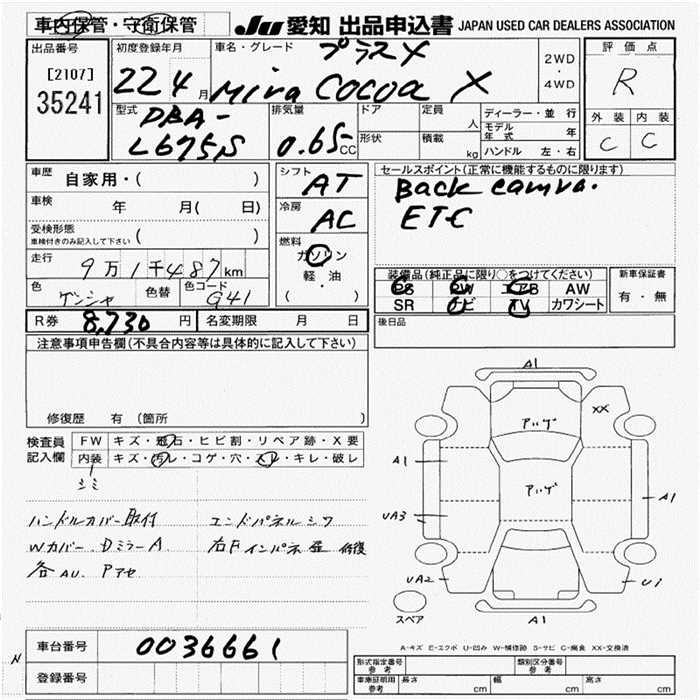 車内保管・守衛保管
JU 愛知 出品申込書 JAPAN USED CAR DEALERS ASSOCIATION
出品番号
[2107]
35241
初度登録年月
22 4 月
車名・グレード
プラスX
Mira Cocoa X
2WD
・
4WD
評価点
R
外装 内装
C C
型式
DBA-
L675S
排気量
0.65 CC
ドア
形状
定員
人
積載
kg
ディーラー・並行
モデル年式 年
ハンドル 左・右
車歴 自家用・( )
車検 年 月(日)
受検形態
車検付きのみ記入して下さい ( )
走行 9万1千487km
色 ゲンシャ 色替 色コード G41
シフト AT
冷房 AC
燃料
ガソリン
軽・油
( )
セールスポイント(正常に機能するものに限ります)
Back camra.
ETC
装備品(純正品に限り○をつけてください)
PS PW エアB AW
SR ナビ TV カワシート
新車保証書
有・無
R券 8,730 円 名変期限 月 日
後日品
注意事項申告欄(不具合内容等は具体的に記入して下さい)
修復歴 有(箇所 )
検査員記入欄
FW キズ・飛石・ヒビ割・リペア跡・X要
内装 キズ・汚レ・コゲ・穴・スレ・キレ・破レ
シミ
ハンドルカバー取付 エンドパネルシワ
Wカバー.DミラーA. 右Fインパネ 修復
各AU. Pアセ
A1
XX
アゲ
A1
アゲ
A1
UA3
UA2
U1
スペア
A1
A-キズ E-エクボ U-凹み W-補修跡 S-サビ C-腐食 XX-交換済
N
車台番号 0036661
登録番号
形式指定番号 参考
類別区分番号 参考
車庫証明用 参考 長さ cm 幅 cm 高さ cm